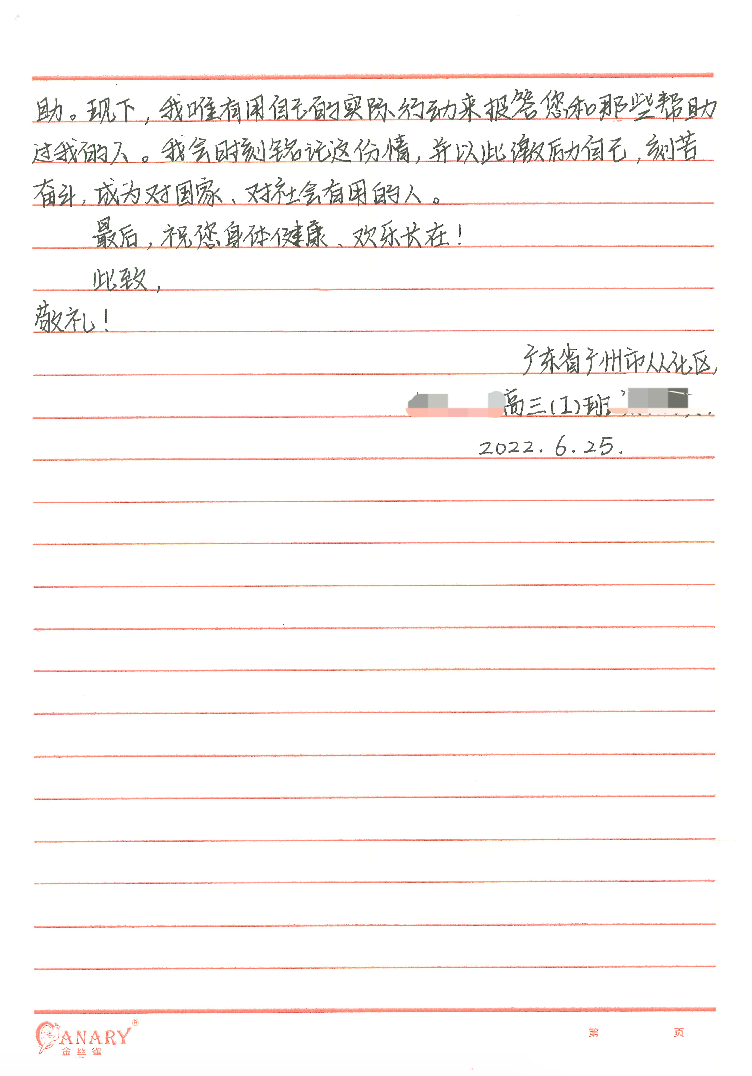 助。现下，我唯有用自己的实际行动来报答您和那些帮助
过我的人。我会时刻铭记这份情，并以此激励自己，刻苦
奋斗，成为对国家、对社会有用的人。
最后，祝您身体健康、欢乐长在！
此致，
敬礼！
广东省广州市从化区，
高三（1）班
2022.6.25.
CANARY®
金丝雀
第 页